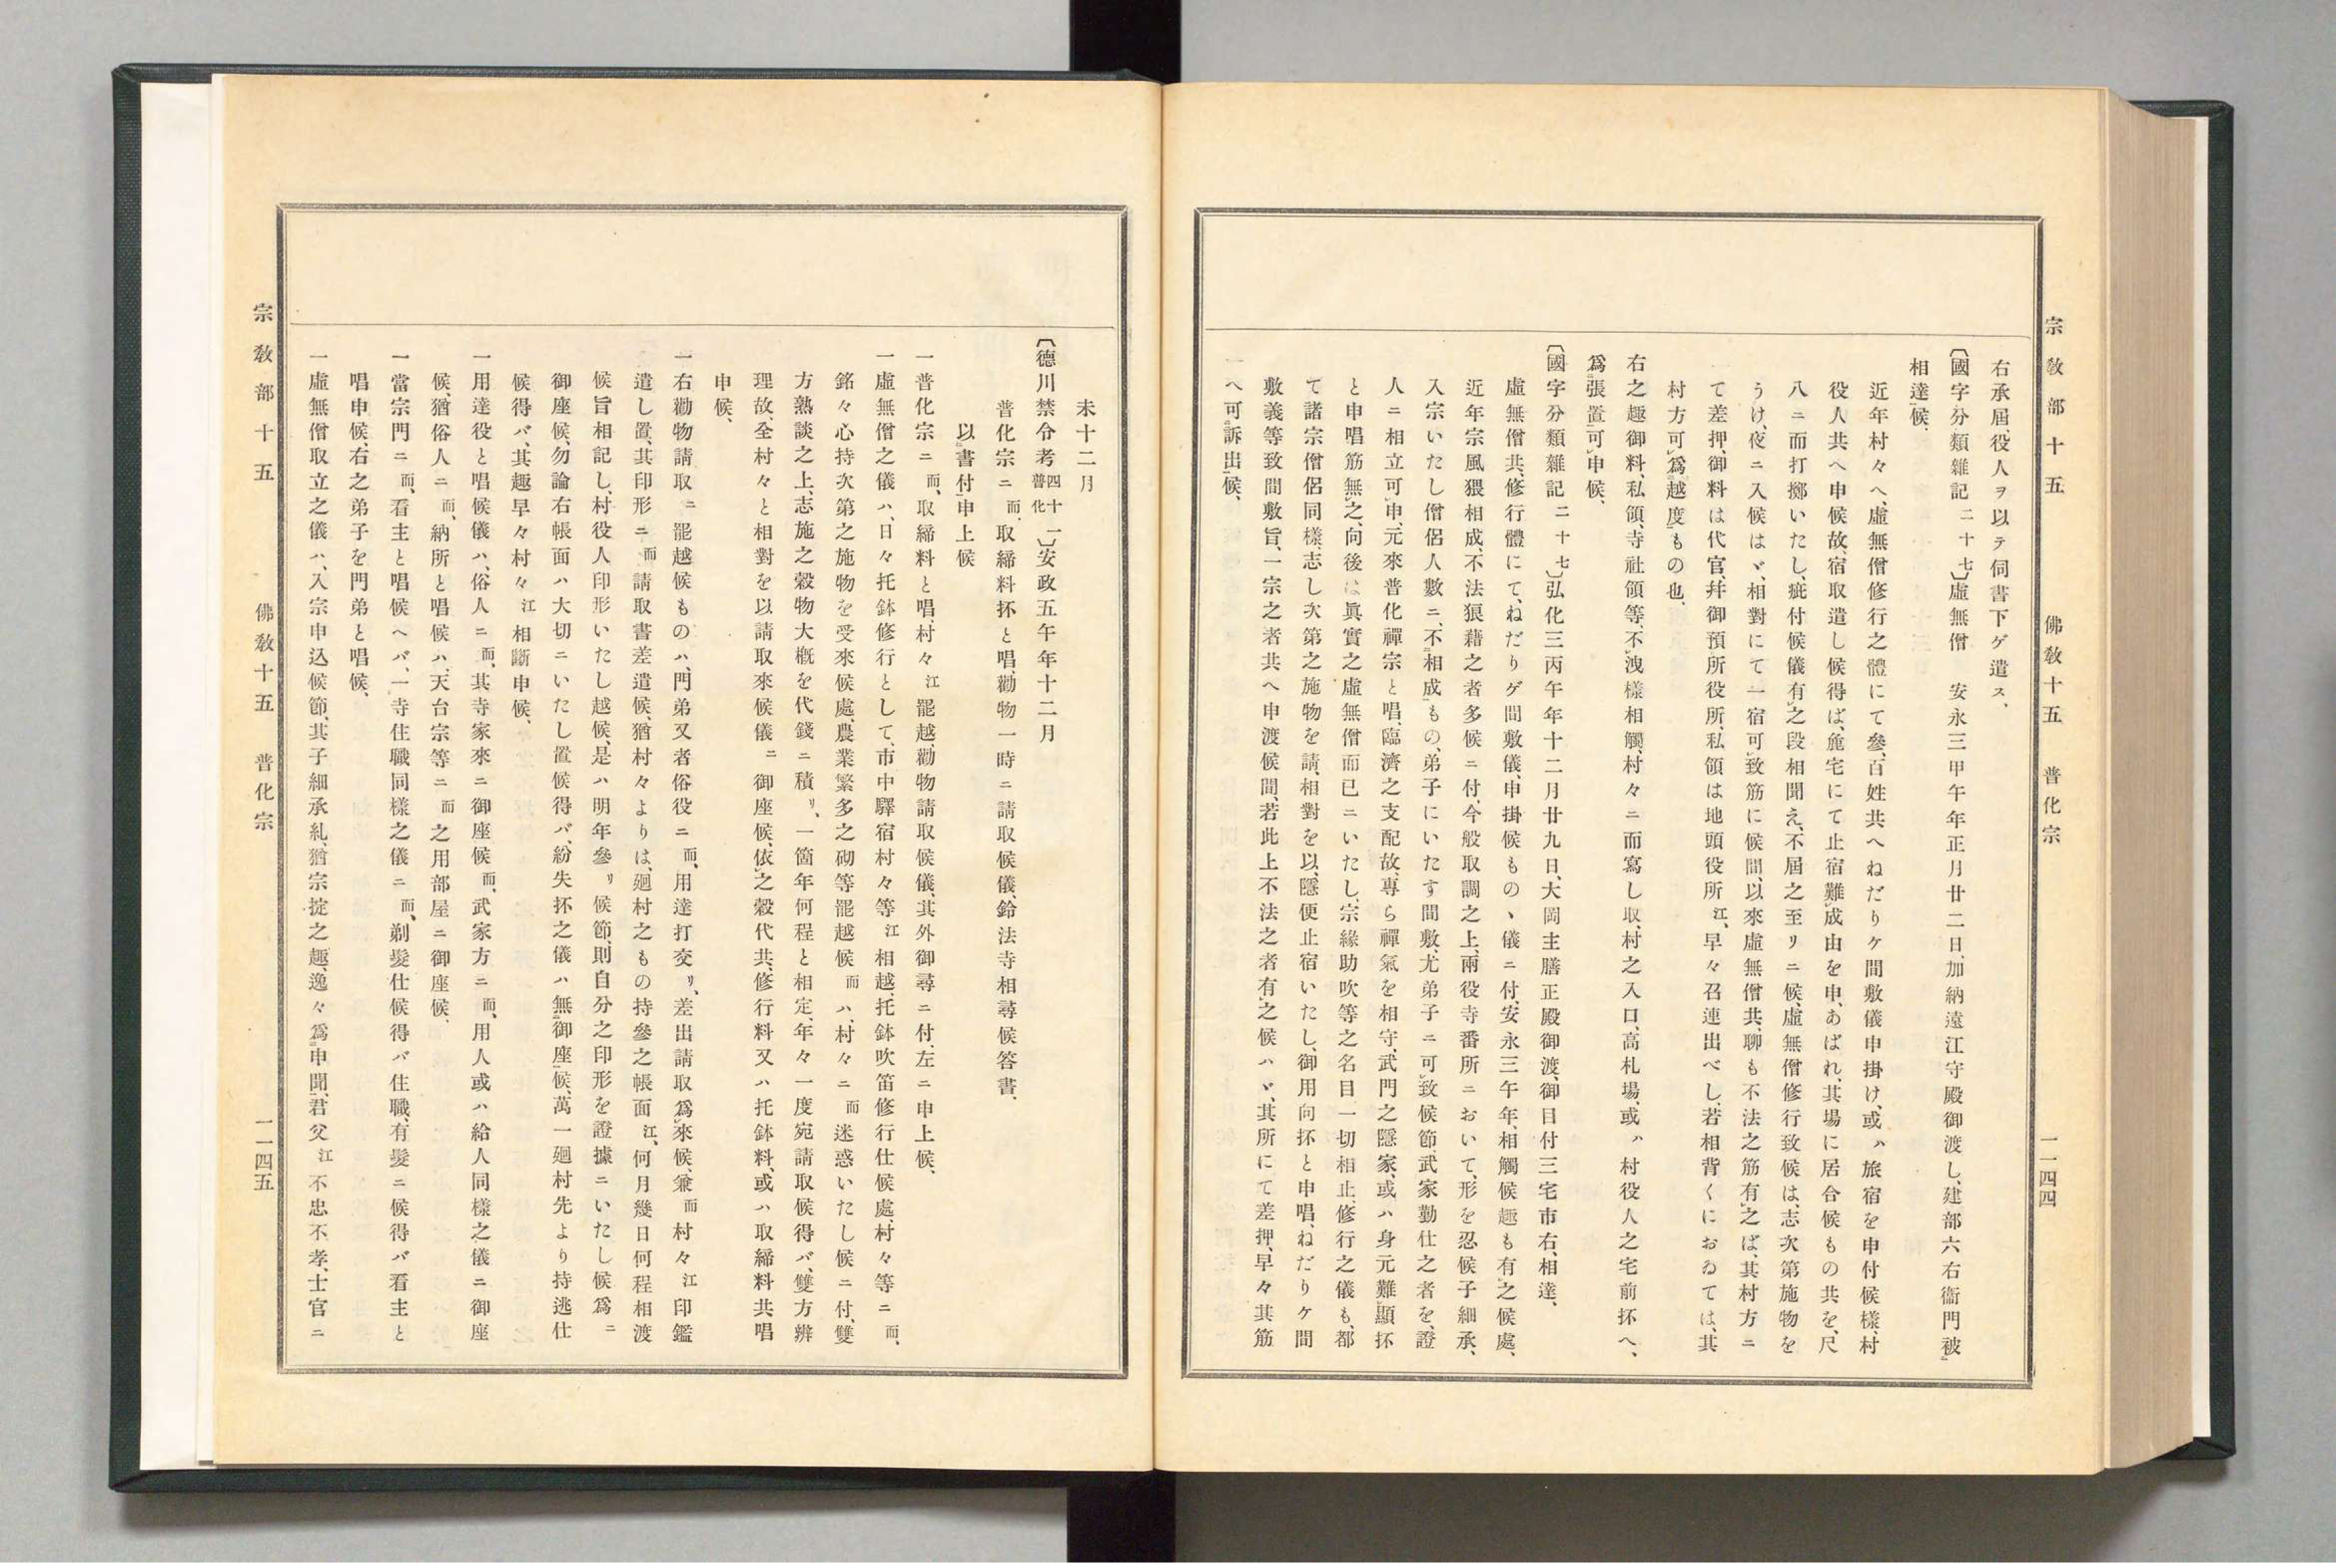 宗教部十五　佛教十五　普化宗　一一四四
右承屆、役人ヲ以テ伺書下ゲ遣ス、
〔國字分類雜記二十七〕虛無僧　安永三甲午年正月廿二日、加納遠江守殿御渡し、建部六右衞門被㆓
相達㆒候、
近年村々へ、虛無僧修行之體にて參、百姓共へねだりケ間敷儀申掛け、或ハ旅宿を申付候樣、村
役人共へ申候故、宿取遣し候得ば、麁宅にて止宿難㆑成由を申、あばれ、其場に居合候もの共を、尺
八ニ而打擲いたし、疵付候儀有㆑之段相聞え、不屆之至リニ候、虛無僧修行致候は、志次第施物を
うけ、夜ニ入候はヾ、相對にて一宿可㆑致筋に候間、以來虛無僧共、聊も不法之筋有㆑之ば、其村方ニ
て差押、御料は代官、幷御預所役所、私領は地頭役所江、早々召連出べし、若相背くにおゐては、其
村方可㆑爲㆓越度㆒もの也、
右之趣御料、私領、寺社領等、不㆑洩樣相觸、村々ニ而寫し取、村之入口、高札場、或ハ村役人之宅前抔へ、
爲㆓張置㆒可㆑申候、
〔國字分類雜記二十七〕弘化三丙午年十二月廿九日、大岡主膳正殿御渡、御目付三宅市右、相達、
虛無僧共、修行體にて、ねだりゲ間敷儀、申掛候ものヽ儀ニ付、安永三午年、相觸候趣も有㆑之候處、
近年宗風猥相成、不法狼藉之者多候ニ付、今般取調之上、兩役寺番所ニおいて、形を忍候子細承、
入宗いたし僧侶人數ニ、不㆓相成㆒もの、弟子にいたす間敷、尤弟子ニ可㆑致候節、武家勤仕之者を、證
人ニ相立可㆑申、元來普化禪宗と唱、臨濟之支配故、專ら禪氣を相守、武門之隱家、或ハ身元難㆑顯抔
と申唱筋無㆑之、向後は眞實之虛無僧而已ニいたし、宗緣助吹等之名目一切相止、修行之儀も、都
て諸宗僧侶同樣、志し次第之施物を請、相對を以、隱便止宿いたし、御用向抔と申唱、ねだりケ間
敷義等致間敷旨、一宗之者共へ申渡候間、若此上不法之者有㆑之候ハヾ、其所にて差押、早々其筋
へ可㆓訴出㆒候、
未十二月
〔德川禁令考四十普化一〕安政五午年十二月
普化宗ニ而、取締料抔と唱、勸物一時ニ請取候儀、鈴法寺相尋候答書、
以㆓書付㆒申上候
一普化宗ニ而、取締料と唱、村々江罷越、勸物請取候儀、其外御尋ニ付、左ニ申上候、
一虛無僧之儀ハ、日々托鉢修行として、市中驛宿村々等江相越、托鉢吹笛修行仕候處、村々等ニ而、
銘々心持次第之施物を受來候處、農業繁多之砌等罷越候而ハ、村々ニ而迷惑いたし候ニ付、雙
方熟談之上、志施之穀物大槪を代錢ニ積リ、一箇年何程と相定、年々一度宛請取候得バ、雙方辨
理故、全村々と相對を以請取來候儀ニ御座候、依㆑之穀代共、修行料又ハ托鉢料、或ハ取締料共、唱
申候、
一右勸物請取ニ罷越候ものハ、門弟又者俗役ニ而、用達打交リ、差出請取爲㆑來候、兼而村々江印鑑
遣し置、其印形ニ而請取書差遣候、猶村々よりは、廻村之もの持參之帳面江、何月幾日何程相渡
候旨相記し、村役人印形いたし越候、是ハ明年參リ候節、則自分之印形を證據ニいたし候爲ニ
御座候、勿論右帳面ハ大切ニいたし置候得バ、紛失抔之儀ハ無㆓御座㆒候、萬一廻村先より持逃仕
候得バ、其趣早々村々江相斷申候、
一用達役と唱候儀ハ、俗人ニ而、其寺家來ニ御座候而、武家方ニ而、用人或ハ給人同樣之儀ニ御座
候、猶俗人ニ而、納所と唱候ハ、天台宗等ニ而之用部屋ニ御座候、
一當宗門ニ而、看主と唱候ヘバ、一寺住職同樣之儀ニ而、剃髮仕候得バ住職、有髮ニ候得バ看主と
唱申候、右之弟子を門弟と唱候、
一虛無僧取立之儀ハ、入宗申込候節、其子細承糺、猶宗掟之趣、逸々爲㆓申聞㆒、君父江不忠不孝、士官ニ
宗敎部十五　佛敎十五　普化宗　一一四五